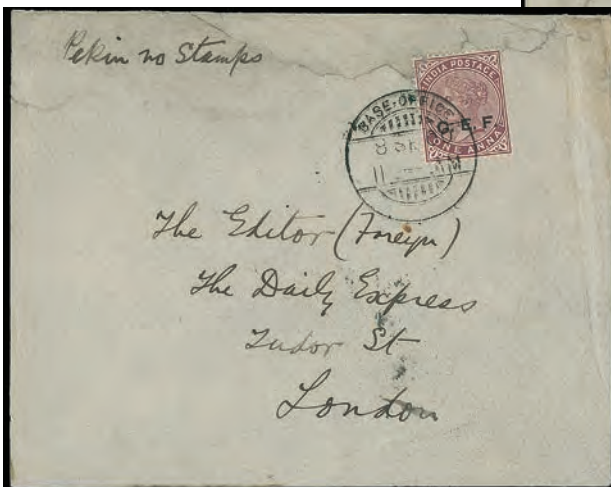 Pekin no Stamps
INDIA POSTAGE
C. E. F
ONE ANNA
BASE-OFFICE
The Editor (Foreign)
The Daily Express
Tudor St
London